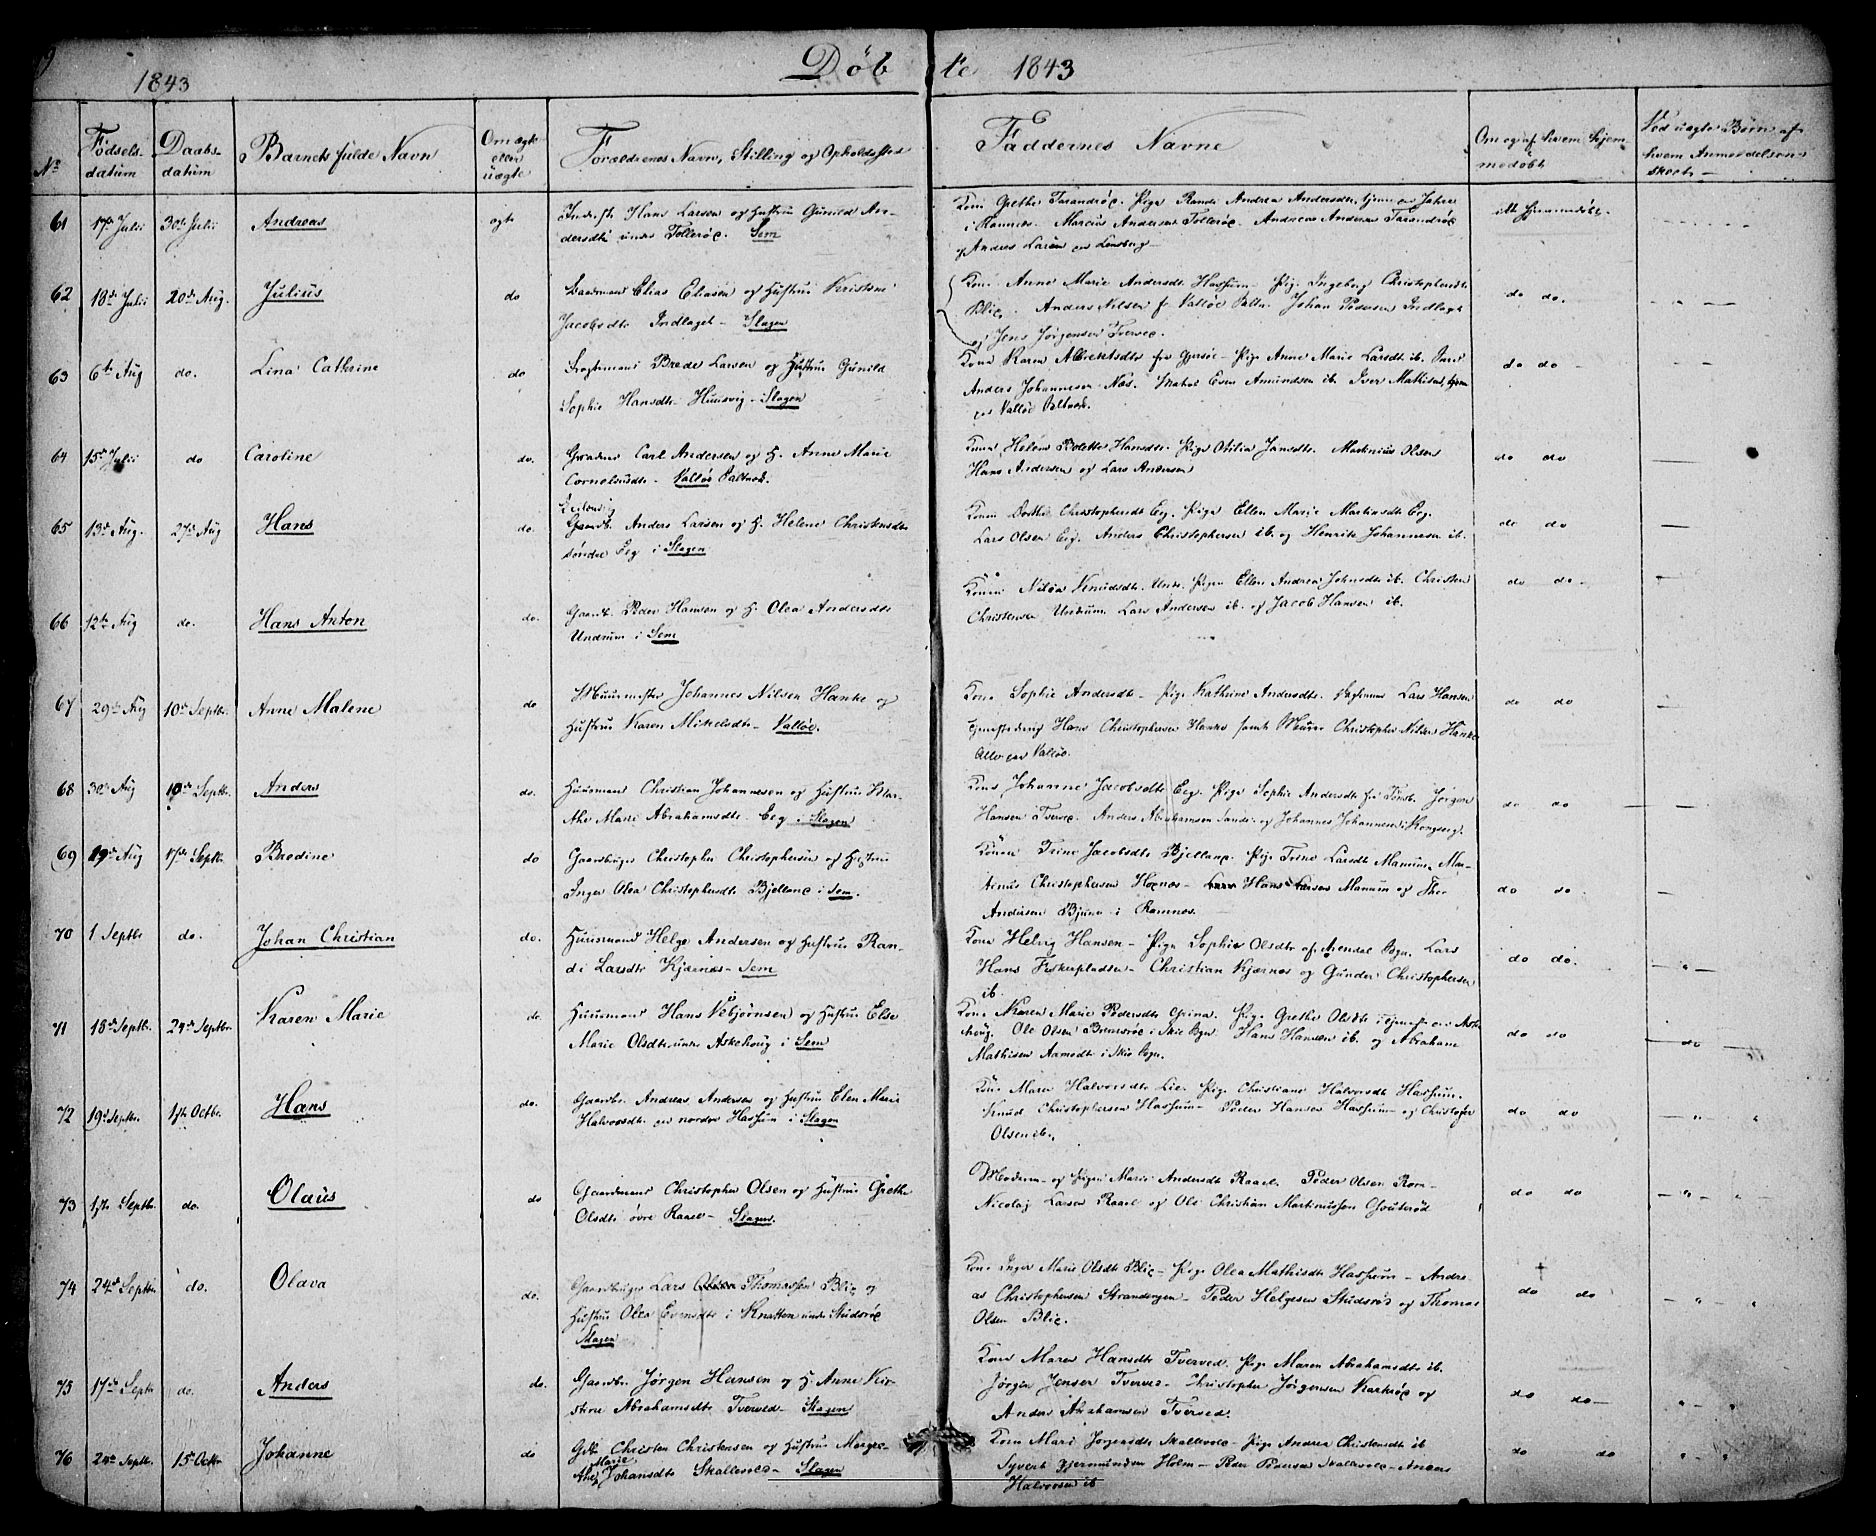 9
1843
Døb te 1843
No
Fødsels-
datum
Daabs-
datum
Barnets fulde Navn
Om ægte
eller
uægte
Forældrenes Navn, Stilling og Opholdssted
Faddernes Navne
Om og af hvem hjem-
medøbt
Ved uægte Børn af
hvem Anmeldelsen
skeet
61 17de Julii 30te Julii Andreas ægte
Hans Larsen og Hustrue Gunild An-
dersdtr under Tollerøe. Sem
Kone Grethe Tarandrøe. Pige Randi Andrea Andersdtr, tjenn
i Hannes. Marcus Andersen Tollerøe. Andreas Andersen Tarandrøe
og Andres Larsen
itt hjemmedøbt.
62 18de Julii 20de Aug. Julius do
Baadmand Elias Eliasen og Hustrue Kirstine
Jacobsdtr Indlaget - Slagen
Kone Anne Marie Andersdt Hassum - Pige Ingeborg Christophersdtr
Blie. Anders Nilsen f Valløe Saltv. Johan Pedersen Indlaget
og Jens Jørgensen Tverved.
do do.
63 6te Aug do. Lina Cathrine do
Brede Larsen og Hustrue Gunild
Sophie Hansdtr Huusvig - Slagen
Kone Karen Albrektsdtr fra - Pige Anne Marie Larsdt ib.
Anders Johannesen Næs. Even Amundsen ib. Iver Mathisen,
Valløe Saltværk.
do do
64 15de Julii do Caroline do.
Carl Andersen og H. Anne Marie
Cornelsusdtr - Valløe Saltværk.
Kone Helene Bolette Hansdtr. Pige Otilia Jansdtr. Martinius Olsen
Hans Andersen og Lars Andersen
do do
65 13de Aug. 27de Aug Hans do.
Gaardb. Anders Larsen og H. Helene Christensdtr
søndre Eeg i Slagen
Kone Dorthe Christophersdt Eeg. Pige Ellen Marie Martinsdt Eeg.
Lars Olsen Eeg. Anders Christophersen ib. og Henrik Johannesen ib.
do do
66 12te Aug do. Hans Anton do.
Gaardb. Peder Hansen og H. Olea Andersdtr
Undrum i Sem
Konen Knudsdtr Undr. Pigen Ellen Andrea Johnsdtr ib. Christen
Christensen Undrum Lars Andersen ib. og Jacob Hansen ib.
do do
67 29de Aug 10de Septbr. Anne Malene do
Muurmester Johannes Nilsen Hanke og
Hustrue Karen Mikelsdtr - Valløe.
Kone Sophie Andersdtr - Pige Kathrine Andersdtr. Lars Hansen
Hans Christophersen Hanke samt Murer Christopher Nilsen Hanke
Alle paa Valløe.
do do
68 30te Aug 10de Septbr. Anders do.
Huusmand Christian Johannesen og Hustrue Mar-
the Marie Abrahamsdtr. Eeg i Slagen
Kone Johanne Jacobsdt Eeg. Pige Sophie Andersdtr fra Tønsb. Jørgen
Hansen Tverved. Anders Abrahamsen Sande og Johannes Johannesen Kongseg.
do do
69 19de Aug 17de Septbr Bredine do
Gaardbruger Christopher Christophersen og Hustrue
Inger Olea Christophersdtr Bjelland i Sem.
Konen Trine Jacobsdt Bjelland. Pige Trine Larsdt Manum. Mar-
tinus Christophersen Høenæs - Hans Larsen Manum og Thor
Andersen Bjune i Ramnes.
do do.
70 1 Septbr do. Johan Christian do.
Huusmand Helge Andersen og Hustrue Ran-
di Larsdtr Kjærnæs - Sem
Kone Helvig Hansen - Pige Sophie Olsdtr af Arendal Bye. Lars
Hans Fiskerpladsen - Christian Kjærnæs og Gunder Christophersen
ib.
do do.
71 18de Septbr. 24de Septbr Karen Marie do.
Huusmand Hans Vebjørnsen og Hustrue Else
Marie Olsdtr under Askehoug i Sem
Kone Karen Marie Pedersdtr . Pige Grethe Olsdtr tjeneste paa Aske-
houg. Ole Olsen i Skie Sogn. Hans Hansen ib. og Abraham
Mathisen Aamodt i Skie Sogn.
do do - do -
72 19de Septbr. 1ste Octbr. Hans do.
Gaardbr. Andreas Andersen og Hustrue Elen Marie
Halvorsdtr. paa nordre Hassum i Slagen
Kone Maren Halvorsdtr Lie. Pige Christiane Halvorsdt Hassum.
Knud Christophersen Hassum - Peder Hansen Hassum - og Christopher
Olsen ib.
do do
73 1ste Septbr. do. Olaus do
Gaardmand Christopher Olsen og Hustrue Grethe
Olsdtr øvre Raael - Slagen.
Moderen - og Pigen Marie Andersdt Raael. Peder Olsen Rom -
Nicolaj Larsen Raael og Ole Christian Martinussen Gouterød
do do
74 24de Septbr. do. Olava do.
Gaardbruger Lars Thomassen Blie og
Hustrue Olea Evensdtr i Knatten under Studsrøe
Slagen
Kone Inger Marie Olsdt Blie - Pige Olea Mathisdt Hassum - Andre-
as Christophersen Strandengen - Peder Helgesen Studsrøe og Thomas
Olsen Blie.
+
do do
75 17de Septbr do. Anders do.
Gaardbr. Jørgen Hansen og H. Anne Kir-
stine Abrahamsdtr Tverved - Slagen
Kone Maren Hansdtr Tverved. Pige Maren Abrahamsdtr ib.
Jørgen Jensen Tverved - Christopher Jørgensen og
Anders Abrahamsen Tverved.
do do -
76 24de Septbr. 15de Octbr Johanne do
Christen Christensen og Hustrue Margre-
the Marie Johansdtr Skallevold - Slagen
Kone Mari Jørgensdtr Skallevold - Pige Andrea Christensdt ib
Syvert Gjermundsen Holm - Peder Pedersen Skallevold - Anders
Halvorsen ib
do do